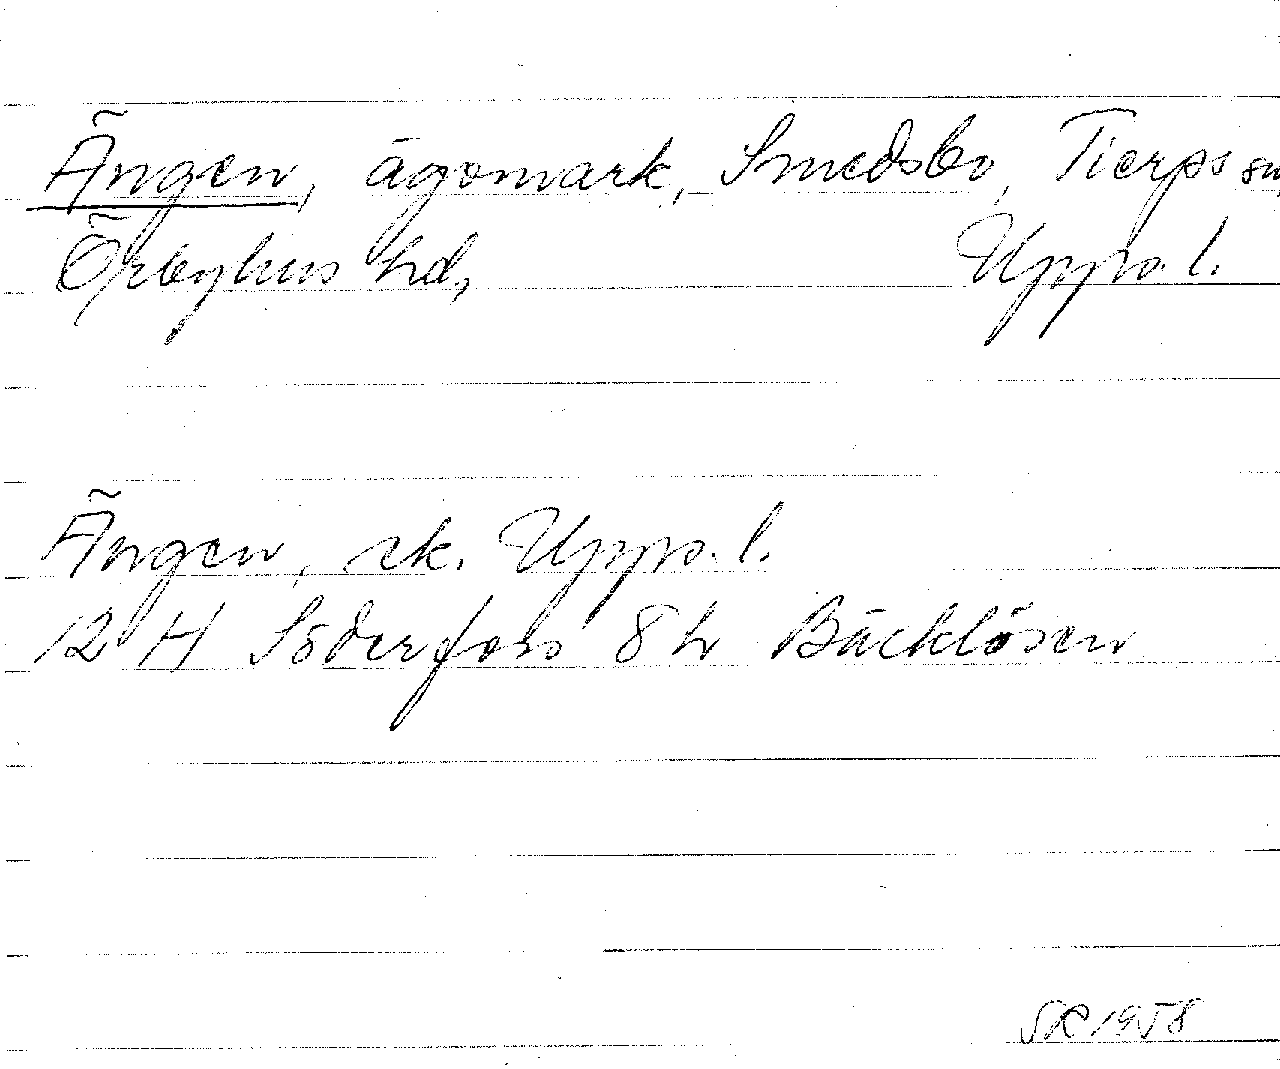 Ängen, ägomark, Smedsbo, Tierps sn,
Örbyhus hd, Upps. l.
Ängen, ek. Upps. l.
12 H Söderfors 8 h Bäcklösen
SR 1958